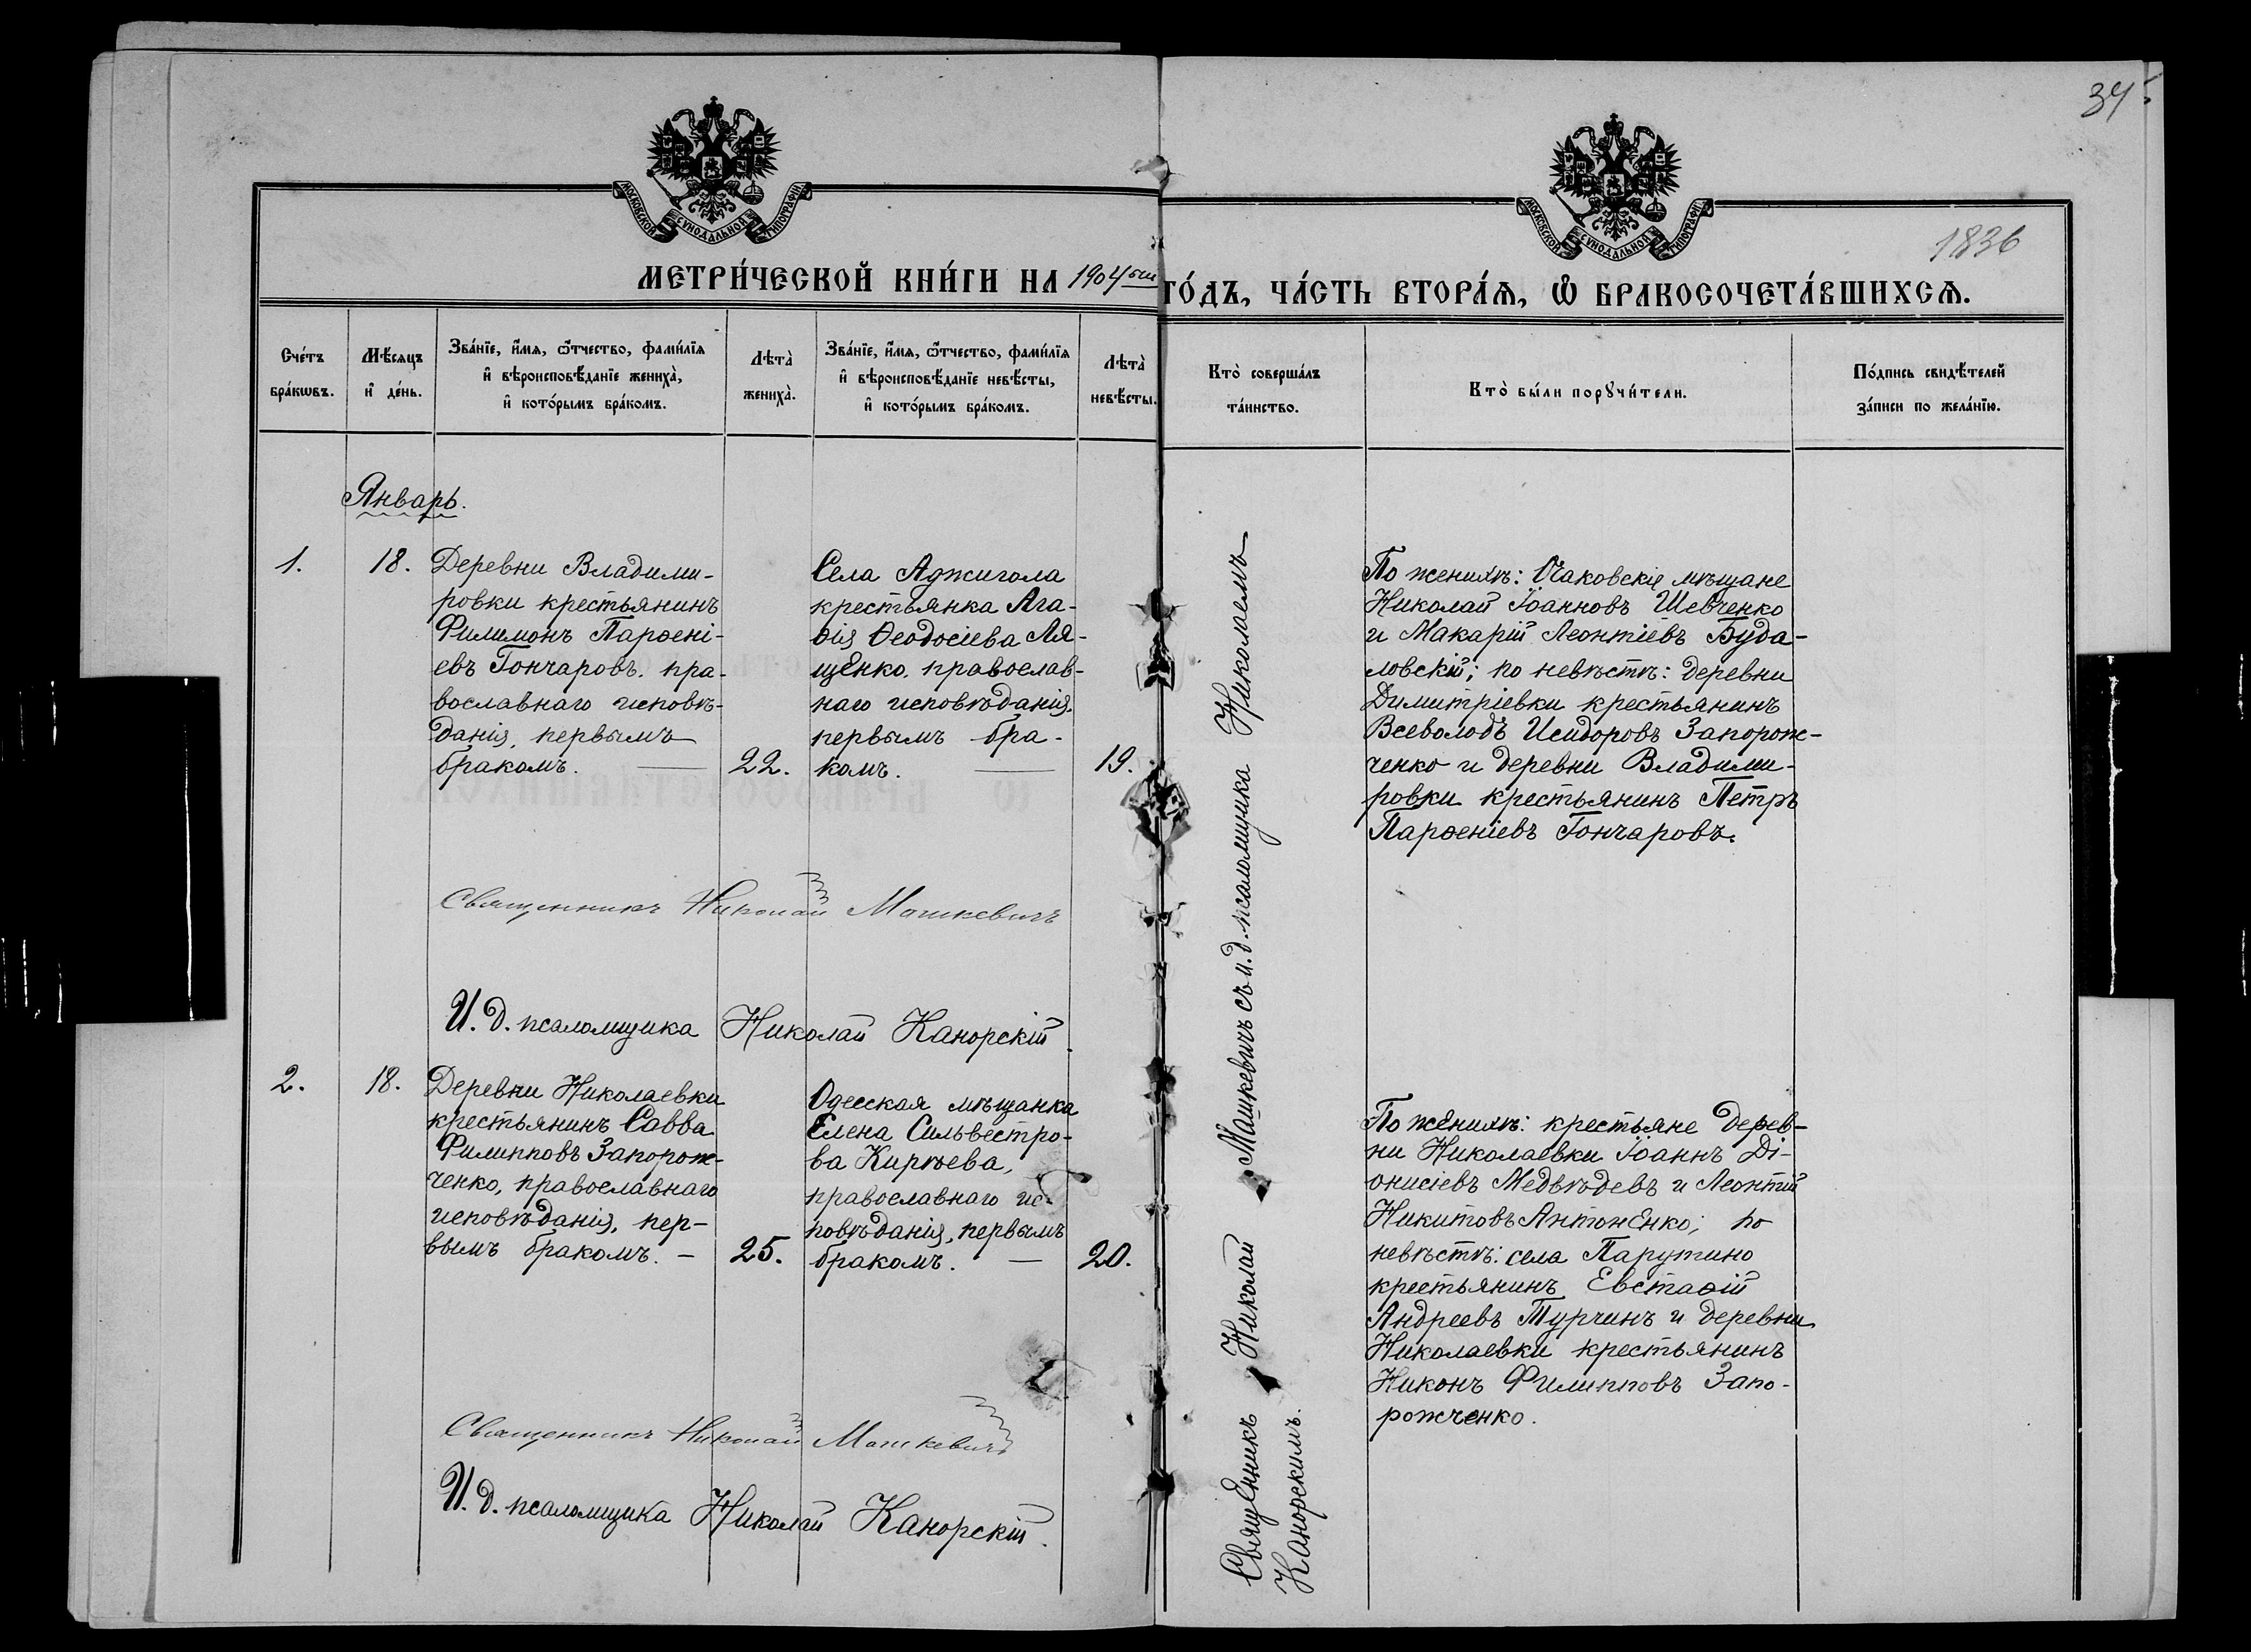 34
1836
МОСКОВСКОЙ СѴНОДАЛЬНОЙ ТИПОГРАФІИ
МОСКОВСКОЙ СѴНОДАЛЬНОЙ ТИПОГРАФІИ
МЕТРИ́ЧЕСКОЙ КНИ́ГИ НА 1904ый ГО́ДЪ, ЧА́СТЬ ВТОРА́Ѧ, Ѽ БРАКОСОЧЕТА́ВШИХСѦ.
Сче́тъ
бра́кѡвъ.
Мѣ́сѧцъ
и҆ де́нь.
Зва́нїе, и҆́мѧ, ѻ҆́тчество, фами́лїѧ
и҆ вѣроисповѣ́данїе жениха̀,
и҆ кото́рымъ бра́комъ.
Лѣта̀
жениха̀.
Зва́нїе, и҆́мѧ, ѻ҆́тчество, фами́лїѧ
и҆ вѣроисповѣ́данїе невѣ́сты,
и҆ кото́рымъ бра́комъ.
Лѣта̀
невѣ́сты.
Кто̀ соверша́лъ
та́инство.
Кто̀ бы́ли порꙋчи́тели.
По́дпись свидѣ́телей
за́писи по жела́нїю.
Январь.
1.
18.
Деревни Владими-
ровки крестьянинъ
Филимонъ Парѳені-
евъ Гончаровъ. пра-
вославнаго исповѣ-
данія, первымъ
бракомъ.
22.
Села Аджигола
крестьянка Ага-
ѳія Ѳеодосіева Ля-
щенко. православ-
наго исповѣданія.
первымъ бра-
комъ.
19.
Священникъ Николай Машкевичъ съ и. д. псаломщика Николаемъ
Канорскимъ.
По женихѣ: Очаковскіе мѣщане
Николай Іоанновъ Шевченко
и Макарій Леонтіевъ Буда-
ловскій; по невѣстѣ: деревни
Димитріевки крестьянинъ
Всеволодъ Исидоровъ Запорож-
ченко и деревни Владими-
ровки крестьянинъ Петръ
Парѳеніевъ Гончаровъ.
Священникъ Николай Машкевичъ
И. д. псаломщика Николай Канорскій.
2.
18.
Деревни Николаевки
крестьянинъ Савва
Филипповъ Запорож-
ченко, православнаго
исповѣданія, пер-
вымъ бракомъ.
25.
Одесская мѣщанка
Елена Сильвестро-
ва Киреева,
православнаго ис-
повѣданія, первымъ
бракомъ.
20.
По женихѣ: крестьяне дерев-
ни Николаевки Іоаннъ Ді-
онисіевъ Медвѣдевъ и Леонтій
Никитовъ Антоненко; по
невѣстѣ: села Парутино
крестьянинъ Евстаѳій
Андреевъ Турчинъ и деревни
Николаевки крестьянинъ
Никонъ Филипповъ Запо-
рожченко.
Священникъ Николай Машкевичъ
И. д. псаломщика Николай Канорскій.